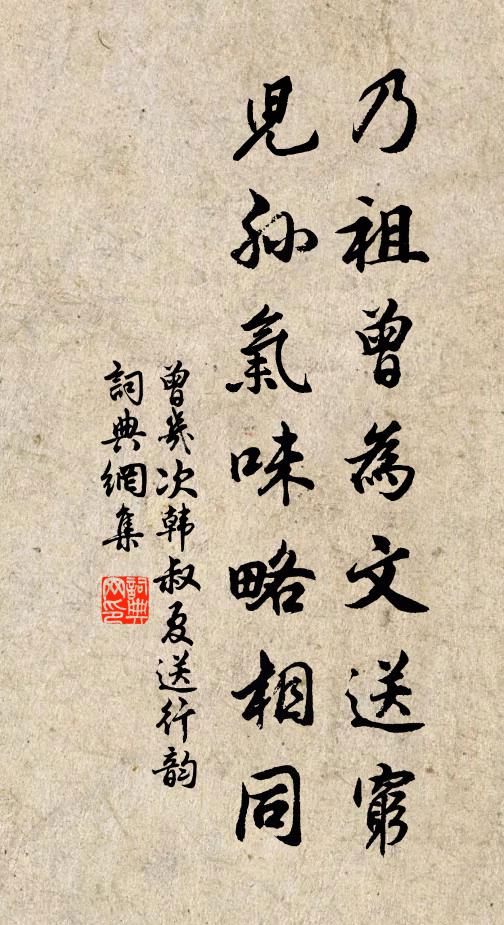 乃祖曾為文送窮
兒孫氣味略相同
曾幾次韓叔夏送行韵
詞典網集
詞典網印